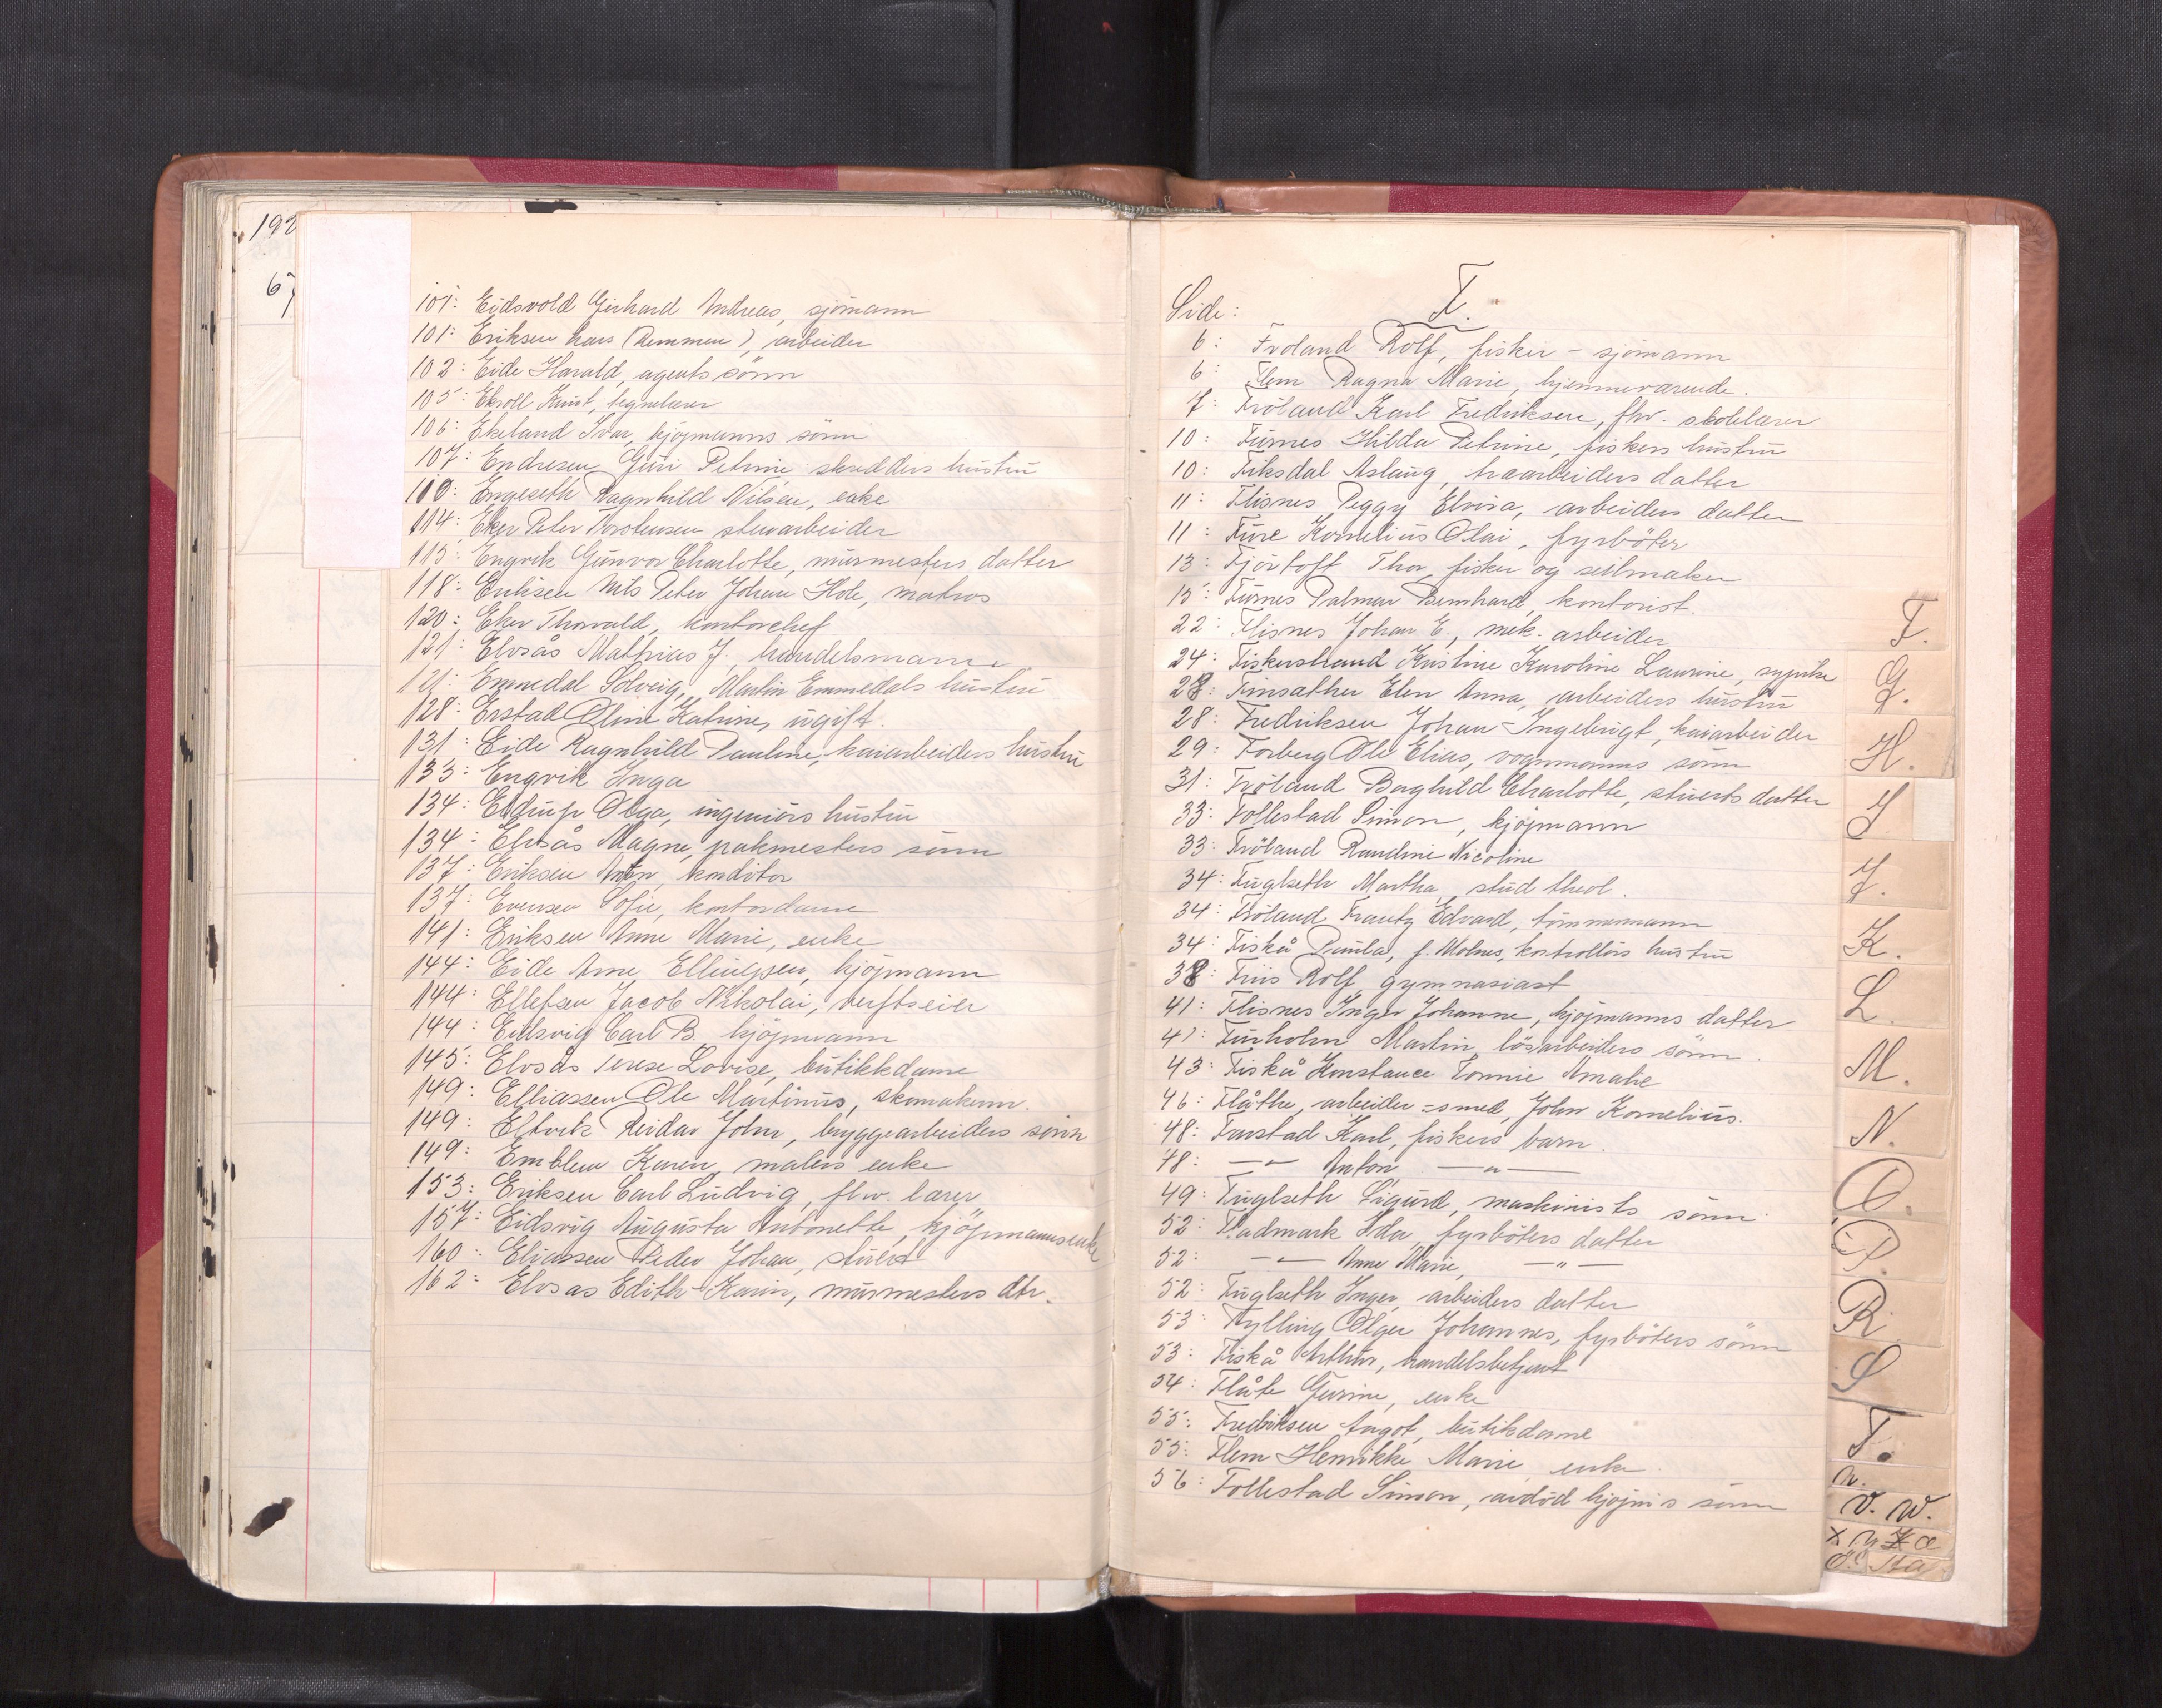 192
67
101: Eidsvold Gerhard Andreas, sjömann
101: Eriksen Lars (Remmen), arbeider
102: Eide Harald, agents sönn
105: Ekroll Knut, tegnelærer
106: Ekeland Ivar, kjöpmanns sönn
107: Endresen Guri Petrine skredders hustru
110: Engeseth Ragnhild Nilsen, enke
114: Eker Peter Torstensen stenarbeider
115: Engvik Gunvor Charlotte, murmesters datter
118: Eriksen Nils Peter Johan Hole, matros
120: Eker Thorvald, kontorchef
121: Elvsås Mathias J., handelsmann
121: Emmedal Solveig, Martin Emmedals hustru
128: Erstad Oline Katrine, ugift.
131: Eide Ragnhild Pauline, kaiarbeiders hustru
133: Engvik Inga
134: Eldrup Olga, ingeniörs hustru
134: Elvsås Magne, pakmesters sönn
137: Eriksen Anton, konditor
137: Evensen Sofie, kontordame
141: Eriksen Anne Marie, enke
144: Eide Arne Ellingsen, kjöpmann
144: Ellefsen Jacob Nikolai, verftseier
144: Eidsvig Carl B. kjöpmann
145: Elvsås Terese Lovise, butikkdame
149: Elliassen Ole Martinus, skomaker
149: Eltvik Reidar John, bryggearbeiders sönn
149: Emblem Karen, malers enke
153: Eriksen Carl Ludvig, fhv. lærer
157: Eidsvig Augusta Antonette, kjöpmannsenke
160: Eliassen Peder Johan, stuert
162: Elvsås Edith Karin, murmesters dtr.
F.
Side:
6: Froland Rolf, fisker - sjömann
6: Flem Ragna Marie, hjemmeværende.
7: Fröland Karl Fredriksen, fhv. skolelærer
10: Furnes Hilda Petrine, fiskers hustru
10: Fiksdal Aslaug, traarbeiders datter
11: Flisnes Peggy Elvira, arbeiders datter
11: Fure Kornelius Olai, fyrböter
13: Fjörtoft Thor, fisker og seilmaker
15: Furnes Palmar Bernhard, kontorist.
22: Flisnes Johan E., mek. arbeider
24: Fiskerstrand Kristine Karoline Laurine, sypike
28: Finsæther Elen Anna, arbeiders hustru
28: Fredriksen Johan Ingebrigt, kaiarbeider
29: Forberg Ole Elias, vognmanns sönn
31: Fröland Borghild Charlotte, stuerts datter
33: Follestad Simon, kjöpmann
33: Fröland Randine Nicoline
34: Fuglseth Martha, stud theol.
34: Fröland Frantz Edvard, tömmermann
34: Fiskå Paula, f. Molnes, kontrollörs hustru
38: Friis Rolf, gymnasiast
41: Flisnes Inger Johanne, kjöpmanns datter
41: Furholm Martin, lösarbeiders sönn.
43: Fiskå Konstance Tonnie Amalie
46: Flåthe, arbeider - smed, John Kornelius.
48: Farstad Karl, fiskers barn.
48: —"— Anton —"—
49: Fuglseth Sigurd, maskinists sönn
52: Fladmark Ida, fyrböters datter
52: —"— Anne Marie, —"—
52: Fuglseth Inger, arbeiders datter
53: Fylling Olger Johannes, fyrböters sönn
53: Fiskå Arthur, handelsbetjent
54: Flåte Gurine, enke
55: Fredriksen Angot, butikdame
55: Flem Henrikke Marie enke.
56: Follestad Simon, avdöd kjöpm's sönn
F.
G.
H.
I
J.
K.
L
M.
N.
O.
P.
R
S
T.
U.
V. W.
X Y Z Æ